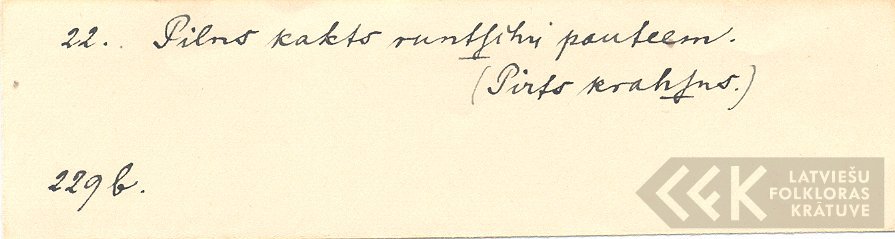 22. Pilns kakts runtſchi pauteem.
(Pirts krahſns.)
229 b.
LATVIEŠU
FOLKLORAS
KRĀTUVE